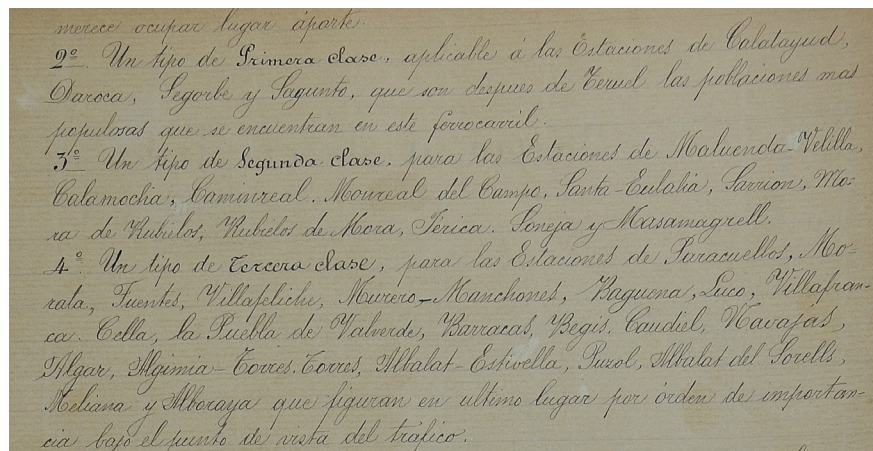 merece ocupar lugar áparte.
2º Un tipo de Primera clase, aplicable á las Estaciones de Calatayud,
Daroca, Segorbe y Sagunto, que son despues de Teruel las poblaciones mas
populosas que se encuentran en este ferrocarril.
3º Un tipo de Segunda clase, para las Estaciones de Maluenda-Velilla,
Calamocha, Caminreal, Monreal del Campo, Santa-Eulalia, Sarrion, Mo-
ra de Rubielos, Rubielos de Mora, Jérica, Soneja y Masamagrell.
4º Un tipo de Tercera clase, para las Estaciones de Paracuellos, Mo-
rata, Fuentes, Villafeliche, Murero-Manchones, Baguena, Luco, Villafran-
ca. Cella, la Puebla de Valverde, Barracas, Begis, Caudiel, Navajas,
Algar, Algimia-Torres.Torres, Albalat-Estivella, Puzol, Albalat del Sorells,
Meliana y Alboraya que figuran en ultimo lugar por órden de importan-
cia bajo el punto de vista del trafico.